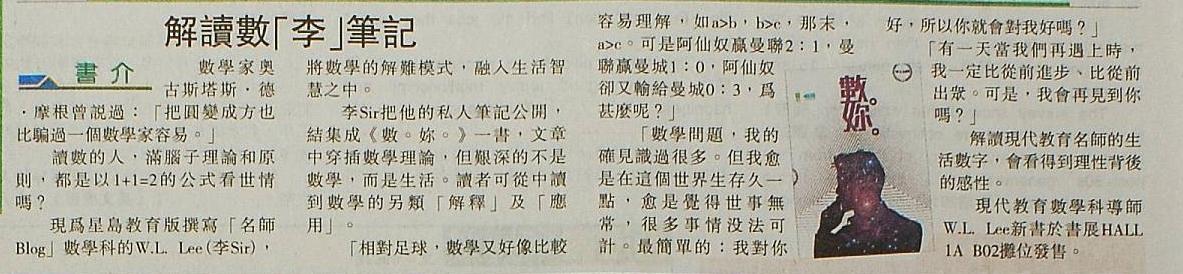 解讀數「李」筆記
書介
數學家奧
古斯塔斯．德
．摩根曾説過：「把圓變成方也
比騙過一個數學家容易。」
讀數的人，滿腦子理論和原
則，都是以1+1=2的公式看世情
嗎？
現爲星島教育版撰寫「名師
Blog」數學科的W.L. Lee(李Sir)，
將數學的解難模式，融入生活智
慧之中。
李Sir把他的私人筆記公開，
結集成《數。妳。》一書，文章
中穿插數學理論，但艱深的不是
數學，而是生活。讀者可從中讀
到數學的另類「解釋」及「應
用」。
「相對足球，數學又好像比較
容易理解，如a>b，b>c，那末，
a>c。可是阿仙奴贏曼聯2：1，曼
聯贏曼城1：0，阿仙奴
卻又輸給曼城0：3，爲
甚麼呢？」
「數學問題，我的
確見識過很多。但我愈
是在這個世界生存久一
點，愈是覺得世事無
常，很多事情没法可
計。最簡單的：我對你
好，所以你就會對我好嗎？」
「有一天當我們再遇上時，
我一定比從前進步、比從前
出眾。可是，我會再見到你
嗎？」
解讀現代教育名師的生
活數字，會看得到理性背後
的感性。
現代教育數學科導師
W.L. Lee新書於書展HALL
1A B02攤位發售。
數。
妳。